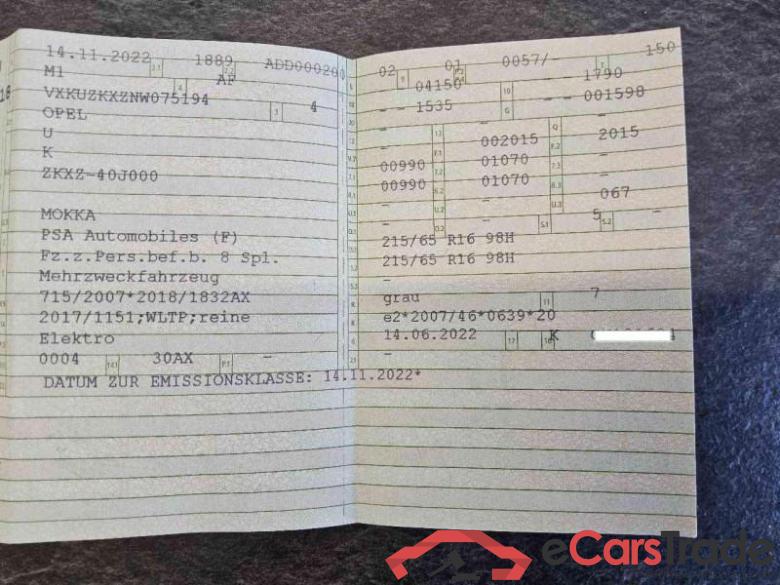 14.11.2022 1889 ADD000200
M1 AF
VXKUZKXZNW075194 4
OPEL
U
K
ZKXZ-40J000
MOKKA
PSA Automobiles (F)
Fz.z.Pers.bef.b. 8 Spl.
Mehrzweckfahrzeug
715/2007*2018/1832AX
2017/1151;WLTP;reine
Elektro
0004 30AX -
DATUM ZUR EMISSIONSKLASSE: 14.11.2022*
02 01 0057/- 150
04150 - - 1790
- - 1535 - - 001598
- - -
- 002015 2015
00990 01070 -
00990 01070 -
- - 067
- 5 -
215/65 R16 98H
215/65 R16 98H
-
grau 7
e2*2007/46*0639*20
14.06.2022 K
-
eCarsTrade